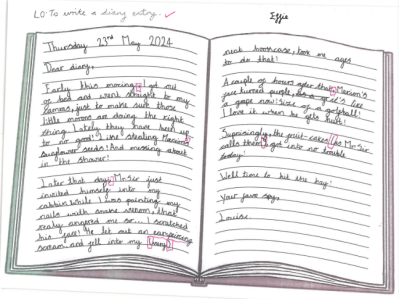 LO: To write a diary entry.
Izzie
Thursday 23rd May 2024
Dear diary,
Early this morning, I got out
of bed and went straight to my
canvas, just to make sure those
little morons are doing the right
thing. Lately they have been up
to no good! Like stealing Marion's
sunflower seeds! And messing about
in the shower!
Later that day, Mr Sir just
invited himself into my
cabin while I was painting my
nails with snake venom, that
really angered me so... I scratched
his face! He let out an
scream and fell into my
neat bookcase, took me ages
to do that!
A couple of hours after that, Marion's
face turned purple, it's like
a grape now! Size of a golfball!
I love it when he gets hurt!
Surprisingly, the
calls them, got into no trouble
today!
Well time to hit the hay!
Your fave spy,
Louise